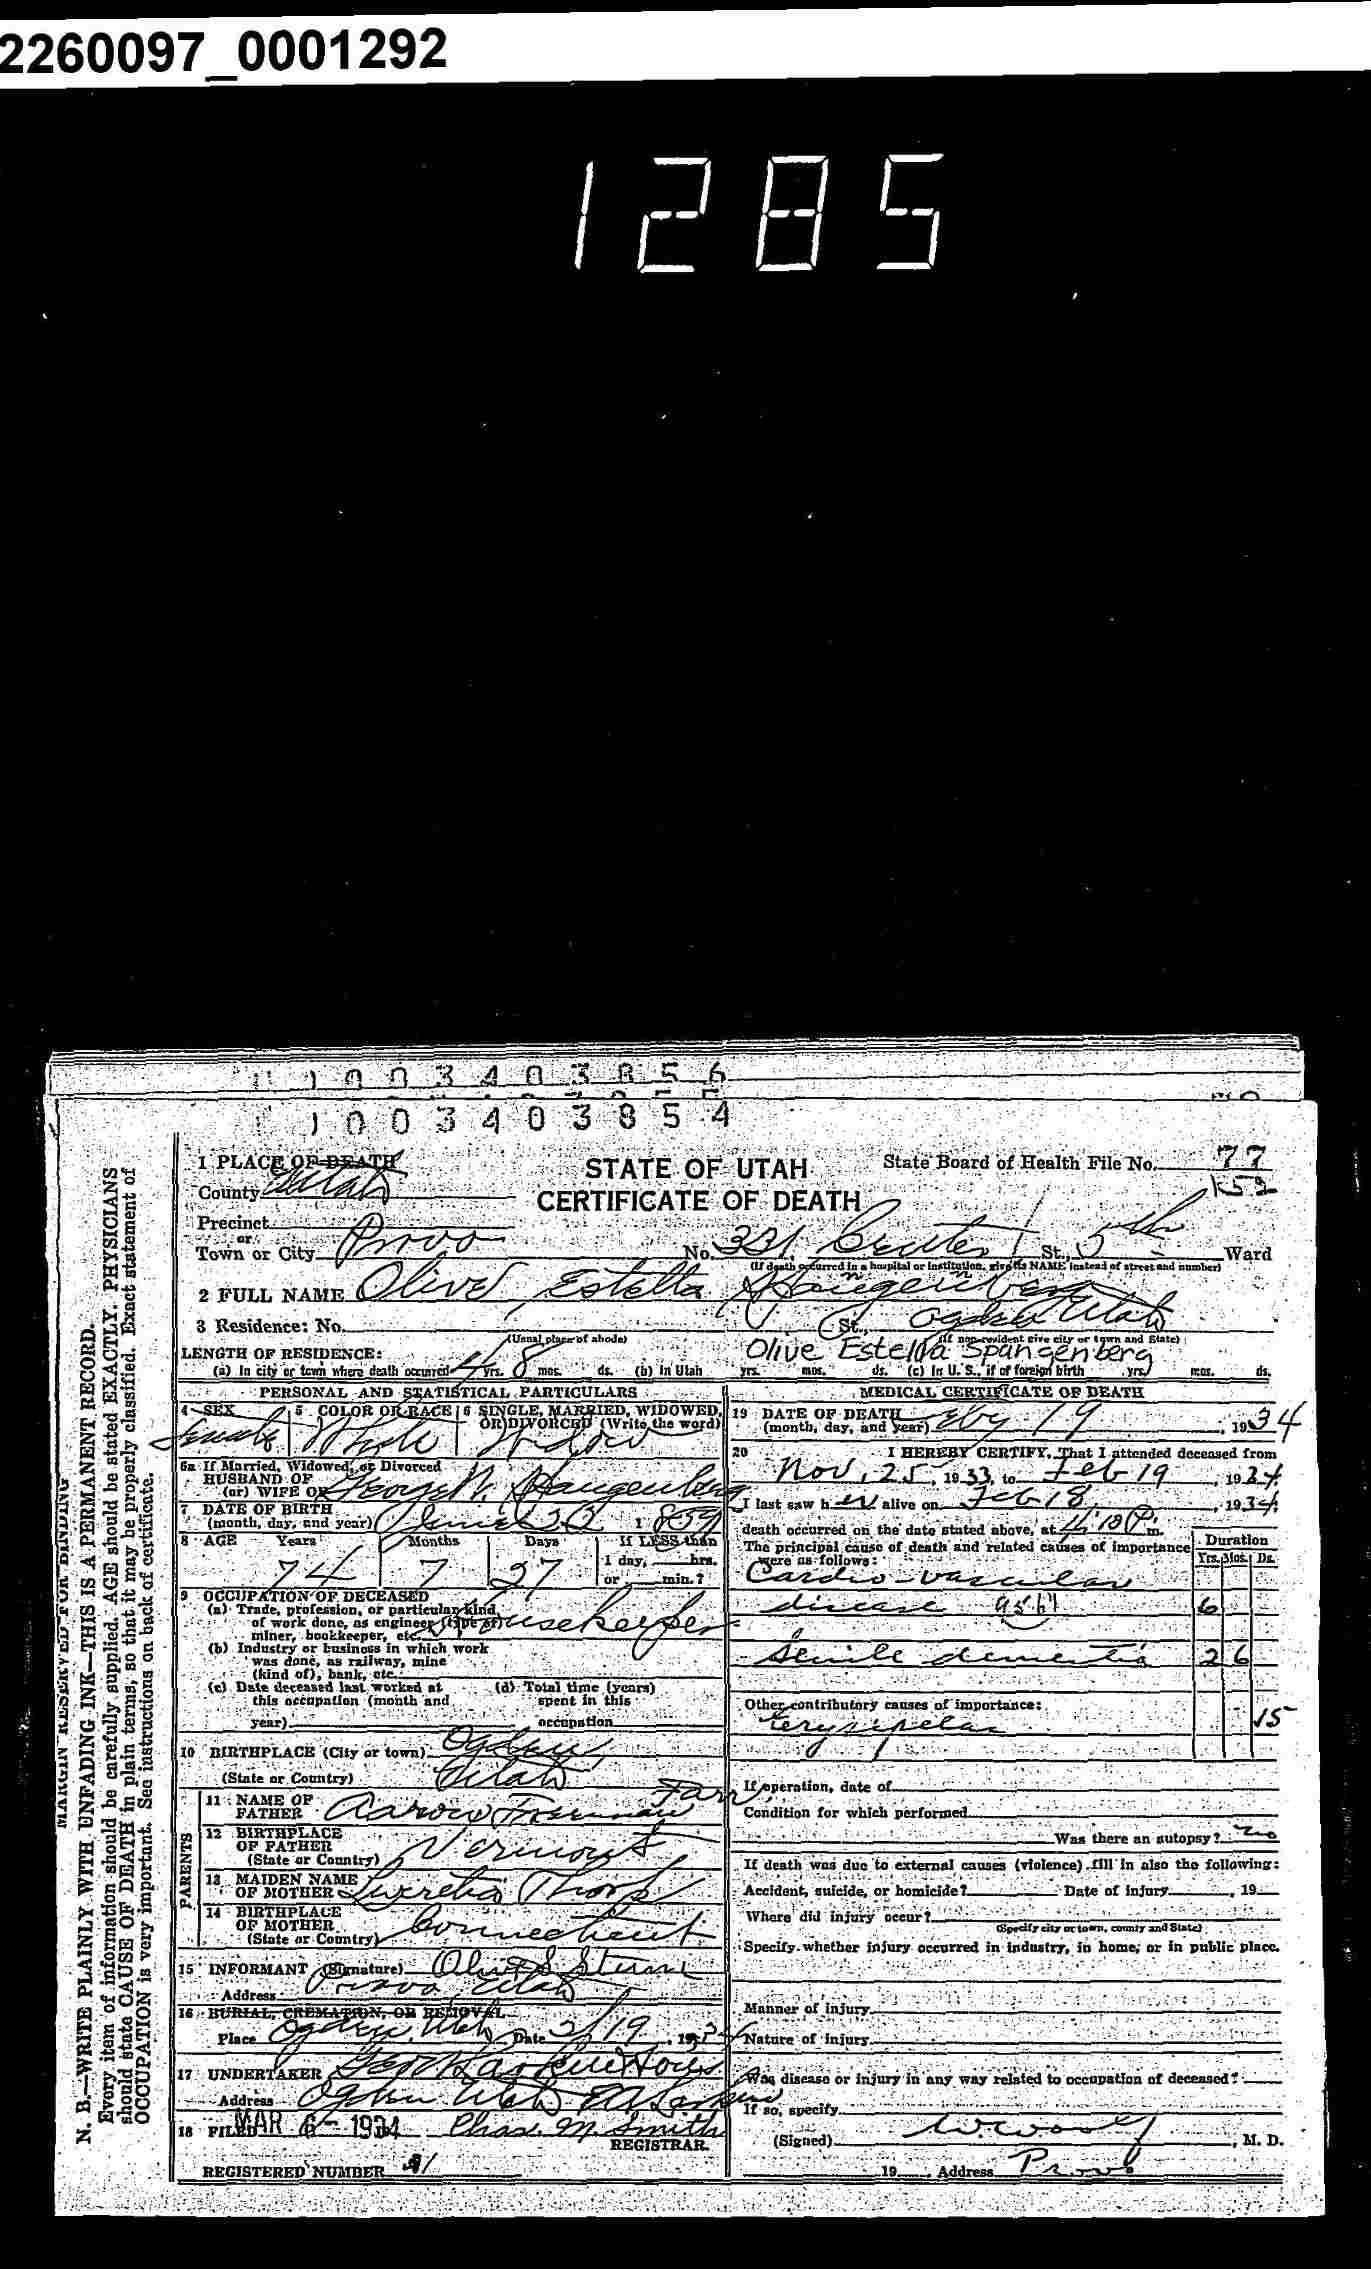 2260097_0001292
1285
1003403856
1003403854
1 PLACE OF DEATH
STATE OF UTAH
State Board of Health File No. 77
County Utah
CERTIFICATE OF DEATH
K52
Precinct
or
Town or City Provo No. 331 Center St., 5th Ward
(If death occurred in a hospital or institution, give its NAME instead of street and number)
2 FULL NAME Olive Estella Spangenberg
3 Residence: No. St., Ogden Utah
(Usual place of abode) (If non-resident give city or town and State)
Olive Estella Spangenberg
LENGTH OF RESIDENCE:
(a) In city or town where death occurred yrs. 8 mos. ds. (b) In Utah yrs. mos. ds. (c) In U. S., if of foreign birth yrs. mos. ds.
PERSONAL AND STATISTICAL PARTICULARS
4 SEX 5 COLOR OR RACE 6 SINGLE, MARRIED, WIDOWED, OR DIVORCED (Write the word)
Female White Widow
6a If Married, Widowed, or Divorced
HUSBAND OF
(or) WIFE OF George N. Spangenberg
7 DATE OF BIRTH
(month, day, and year) June 22 1859
8 AGE Years Months Days If LESS than
74 7 27 1 day, hrs.
or min.?
9 OCCUPATION OF DECEASED
(a) Trade, profession, or particular kind
of work done, as engineer (type of)
miner, bookkeeper, etc. Housekeeper
(b) Industry or business in which work
was done, as railway, mine
(kind of), bank, etc.
(c) Date deceased last worked at
this occupation (month and
year)
(d) Total time (years)
spent in this
occupation
10 BIRTHPLACE (City or town) Ogden
(State or Country) Utah
PARENTS
11 NAME OF
FATHER Aaron Freeman Farr
12 BIRTHPLACE
OF FATHER
(State or Country) Vermont
13 MAIDEN NAME
OF MOTHER Lucretia Thorp
14 BIRTHPLACE
OF MOTHER
(State or Country) Connecticut
15 INFORMANT (Signature) Olive S.
Address Provo, Utah
16 BURIAL, CREMATION, OR REMOVAL
Place Ogden, Utah Date 2/19, 1934
17 UNDERTAKER
Address Ogden Utah
18 FILED MAR 6-1934 Chas. M. Smith
REGISTRAR.
REGISTERED NUMBER
MEDICAL CERTIFICATE OF DEATH
19 DATE OF DEATH
(month, day, and year) Feby 19, 1934
20 I HEREBY CERTIFY, That I attended deceased from
Nov. 25, 1933, to Feb 19, 1934
I last saw her alive on Feb 18, 1934
death occurred on the date stated above, at m.
The principal cause of death and related causes of importance
were as follows:
Duration
Yrs. Mos. Ds.
Cardio-vascular
disease 95b1 6
Senile dementia 2 6
Other contributory causes of importance:
Erysipelas 15
If operation, date of
Condition for which performed
Was there an autopsy? no
If death was due to external causes (violence) fill in also the following:
Accident, suicide, or homicide? Date of injury , 19
Where did injury occur?
(Specify city or town, county and State)
Specify whether injury occurred in industry, in home, or in public place.
Manner of injury
Nature of injury
Was disease or injury in any way related to occupation of deceased?
If so, specify
(Signed) , M. D.
19 , Address Provo
MARGIN RESERVED FOR BINDING
N. B.—WRITE PLAINLY WITH UNFADING INK—THIS IS A PERMANENT RECORD.
Every item of information should be carefully supplied. AGE should be stated EXACTLY. PHYSICIANS
should state CAUSE OF DEATH in plain terms, so that it may be properly classified. Exact statement of
OCCUPATION is very important. See instructions on back of certificate.